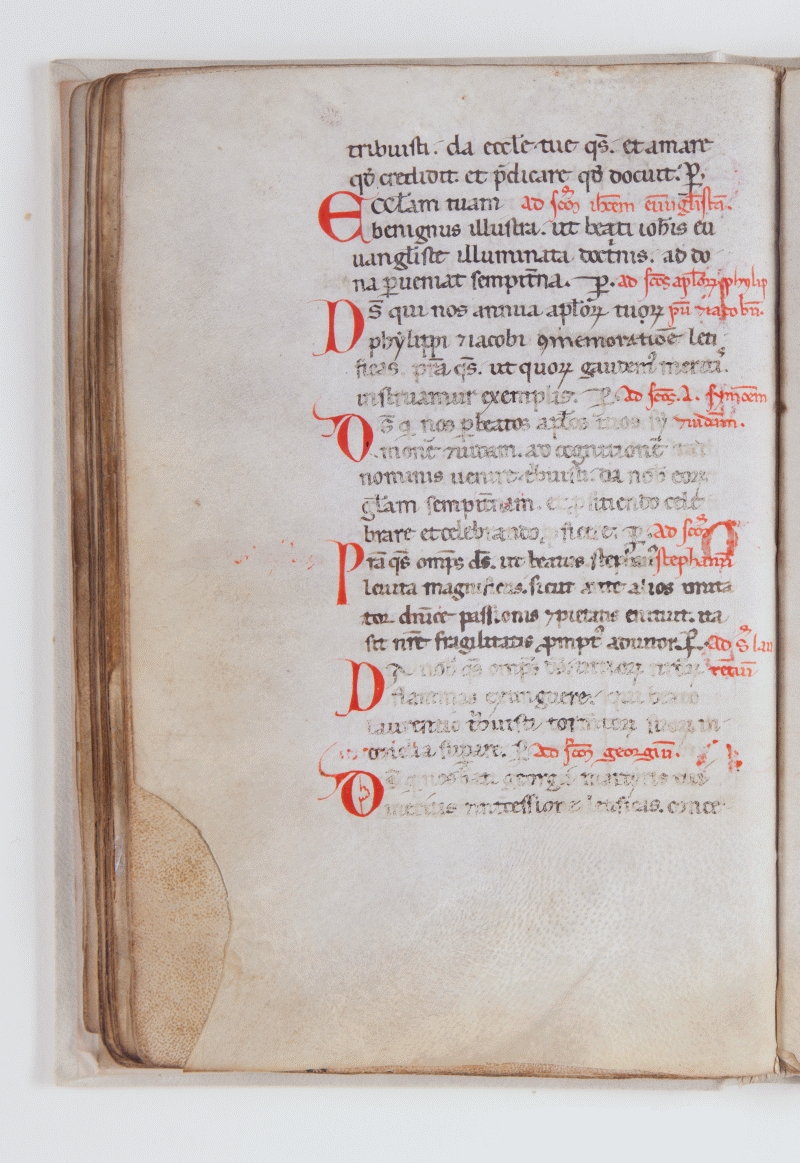 tribuisti. da eccłe tue qs̄. et amare
qđ credidit. et p̄dicare qđ docuit. P̱.
Eccłam tuam ad sc̄m ioħem euūgłistā.
benignus illustra. ut beati ioħis eu
uangłiste illuminata doct̄nis. ad do
na p̱ueniat sempit̄na. P̱. ad sc̄os apłoꝝ phylip
Ds̄ qui nos annua apłoꝝ tuoꝝ pū ⁊ iacobū.
phylippi ⁊ iacobi ꝯmemoratiōe leti
ficas. p̄ra qs̄. ut quoꝝ gaudem᷒ meritis.
instruamur exemplis. P̱. Ad sc̄os. A. symōem
Ds̄ q̇ nos p̱ beatos apłos tuos sy ⁊ iudam.
monē ⁊ iudam. ad cognitionē
nominis uenire t̄buisti. da nob̄ eoꝝ
głam sempit̄nam. et p̱ficiendo cele
brare et celebrando. P̱. Ad sc̄m
Pr̄a qs̄ omp̄s ds̄. ut beatus stephan᷒ stephanū
leuita magnificus. sicut ante alios imita
tor dnīce passionis ⁊ pietatis enituit. ita
sit nr̄e fragilitatis prompt᷒ adiutor. P̱. Ad s̄. lau
Da nob̄ qs̄ omp̄s ds̄. uitioꝝ nr̄oꝝ rētiū
flammas extinguere. qui beato
laurentio t̄buisti tormentoꝝ suoꝝ in
cendia supare. P̱. Ad sc̄m georgiū.
Ds̄ qui nos beati georgii martyris tui
meritis ⁊ int̄cessione letificas. conce